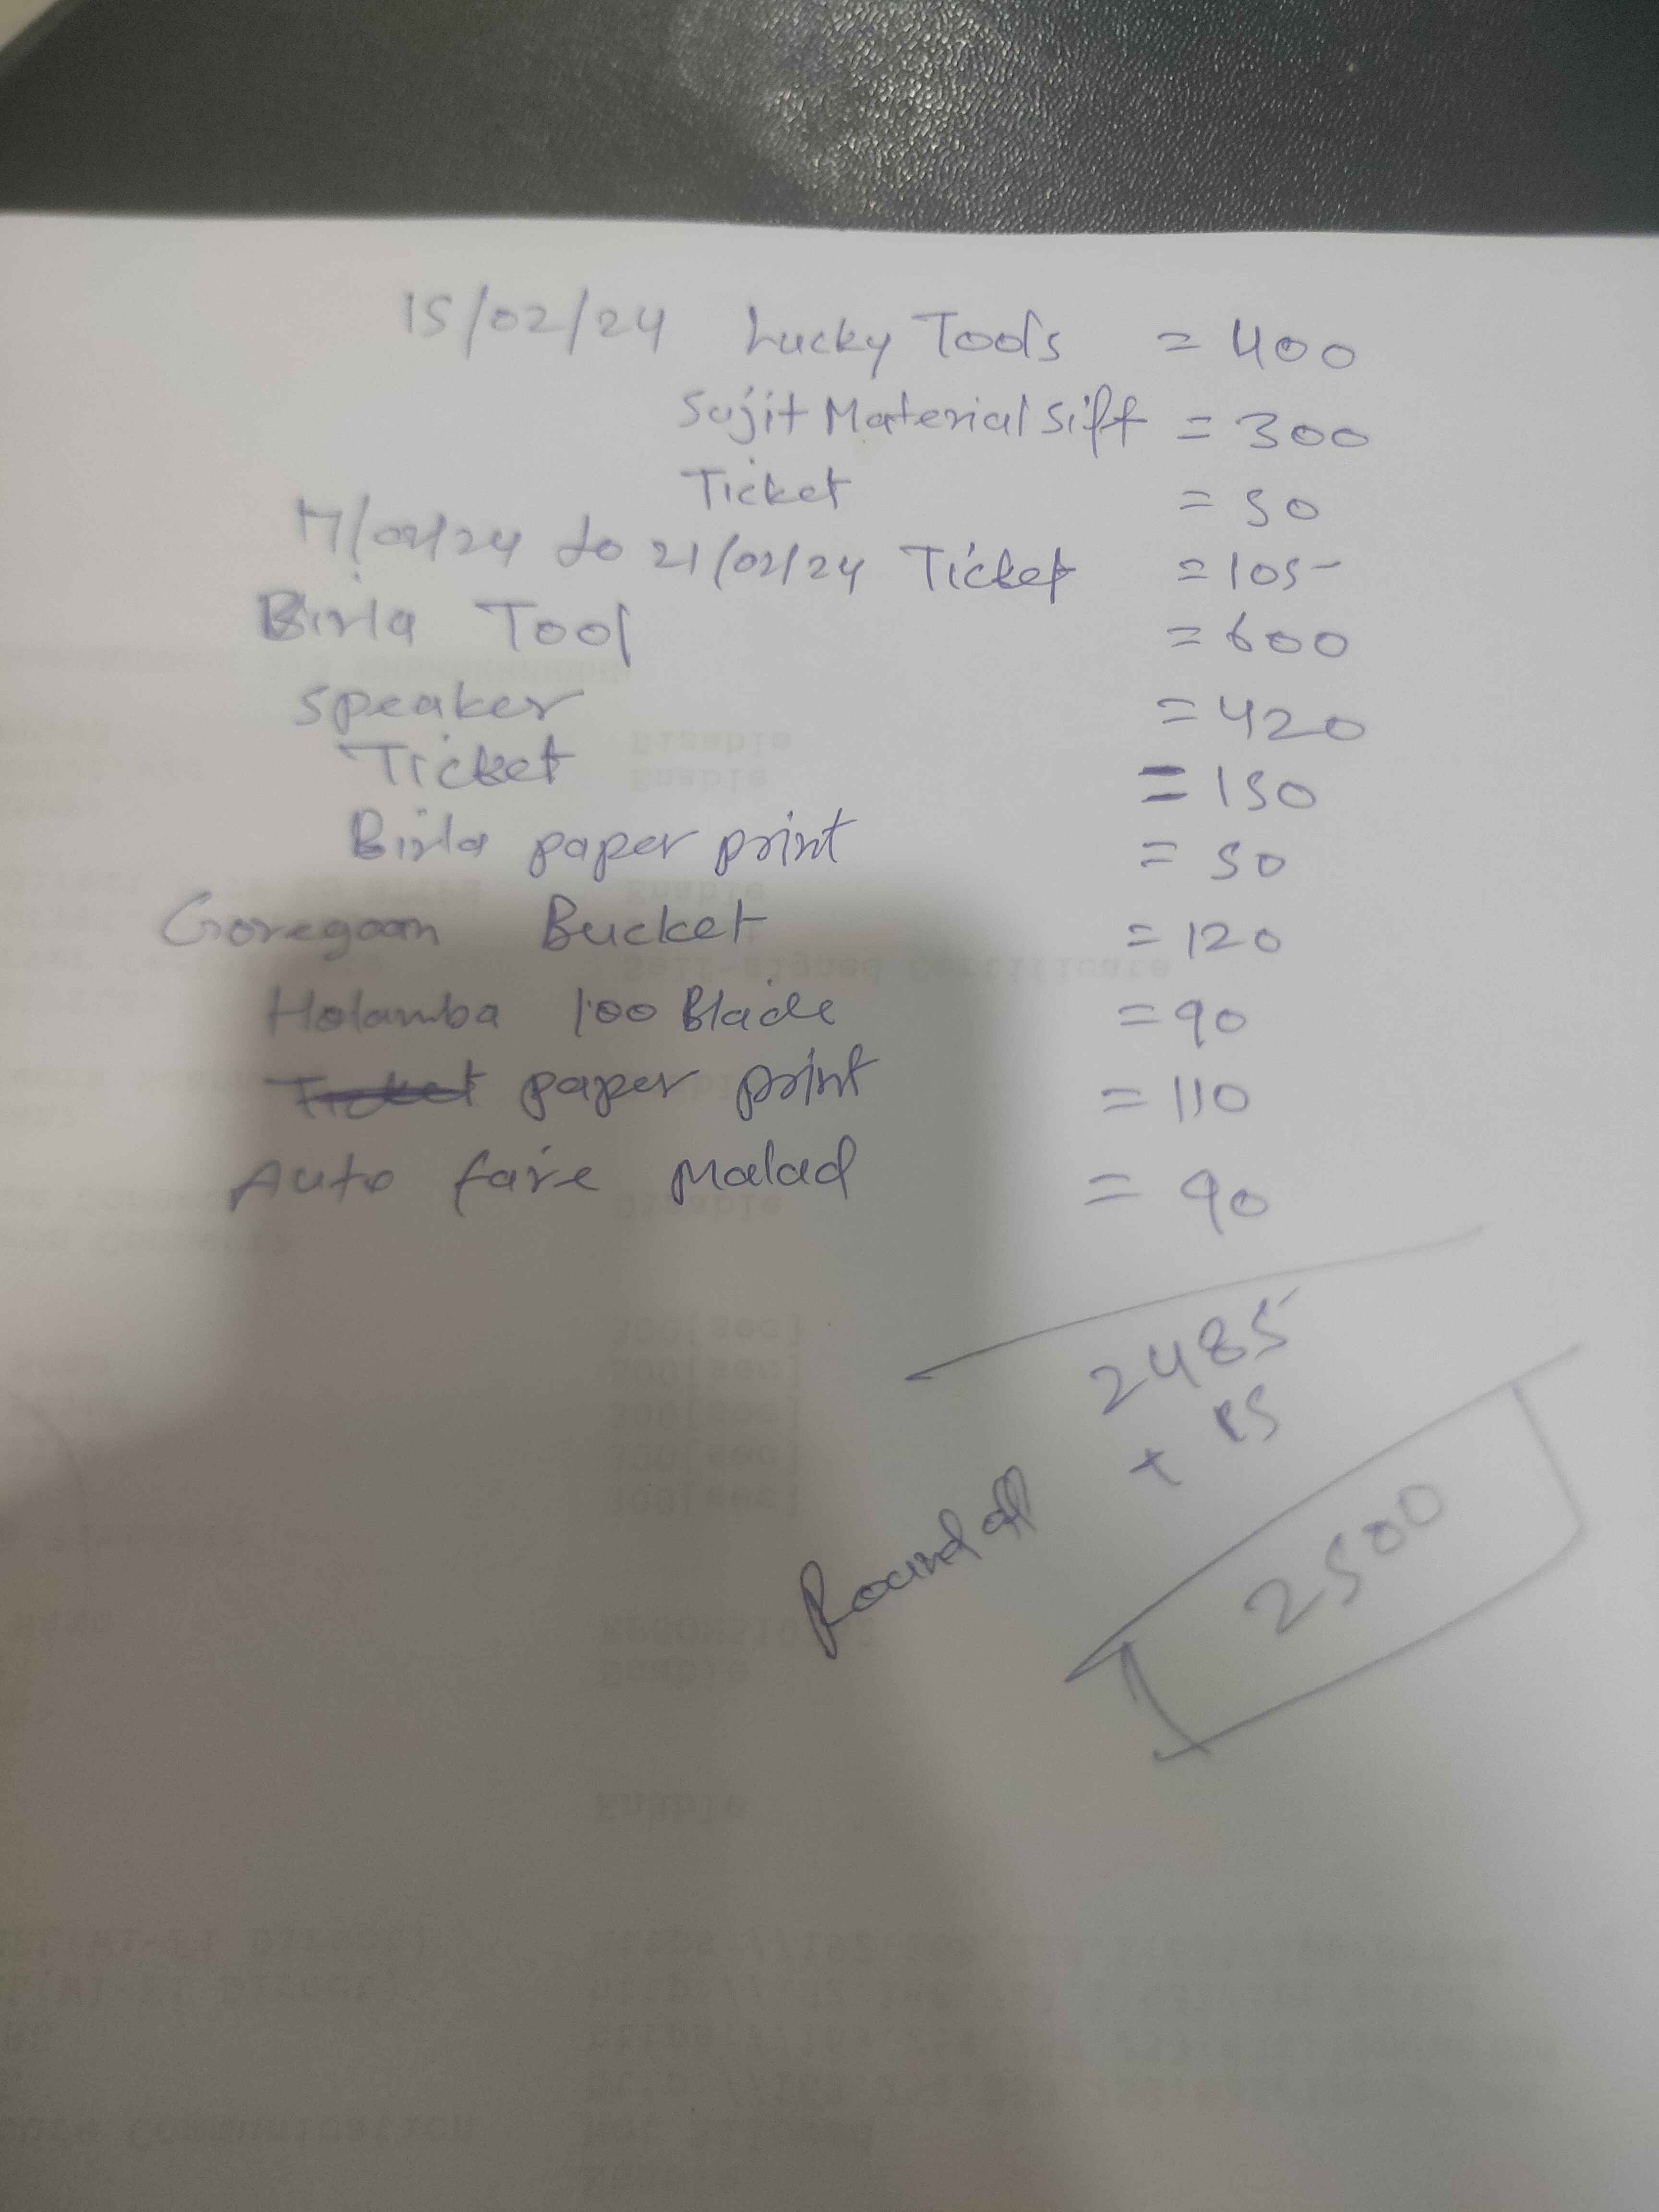 15/02/24 Lucky Tools = 400
Sujit Material Sift = 300
Ticket = 50
17/02/24 to 21/02/24 Ticket = 105
Birla Tool = 600
Speaker = 420
Ticket = 150
Birla paper print = 50
Goregaon Bucket = 120
Holamba 100 Blade = 90
paper print = 110
Auto faire Malad = 90
2485
Round off + 15
2500